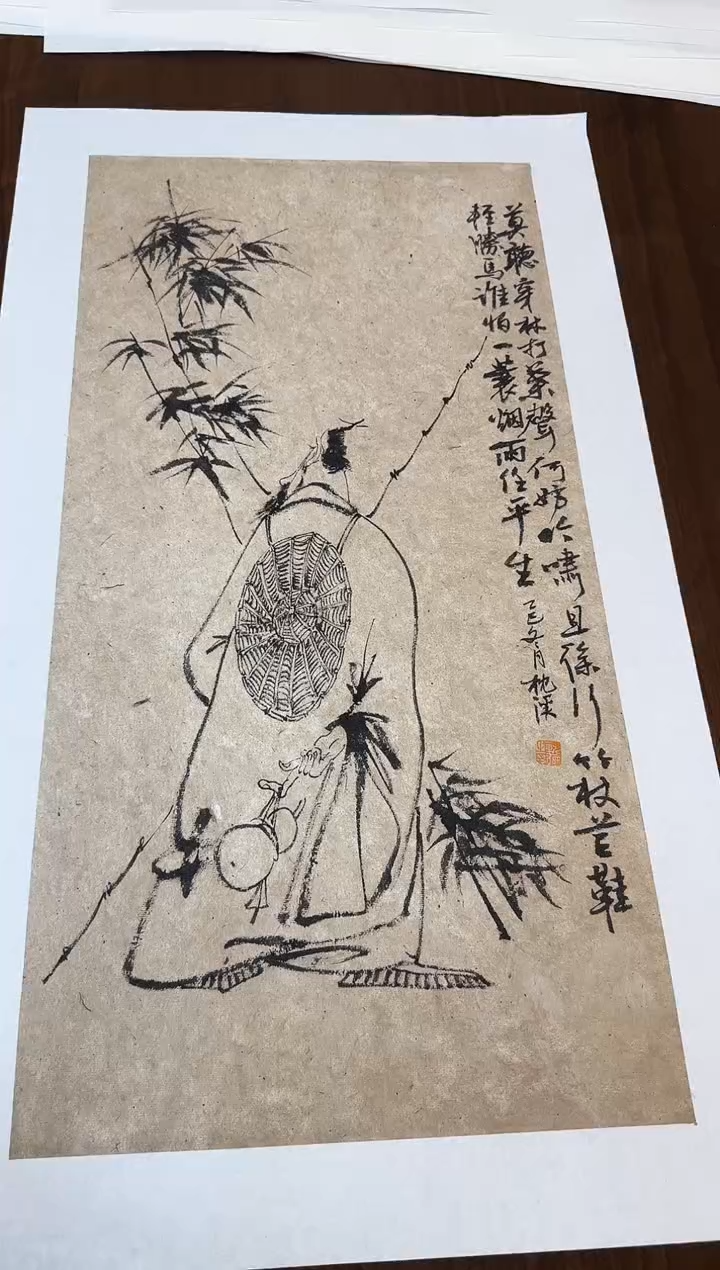 莫聽穿林打葉聲何妨吟嘯且徐行竹杖芒鞋
輕勝馬誰怕一蓑烟雨任平生
乙巳冬月枕溪